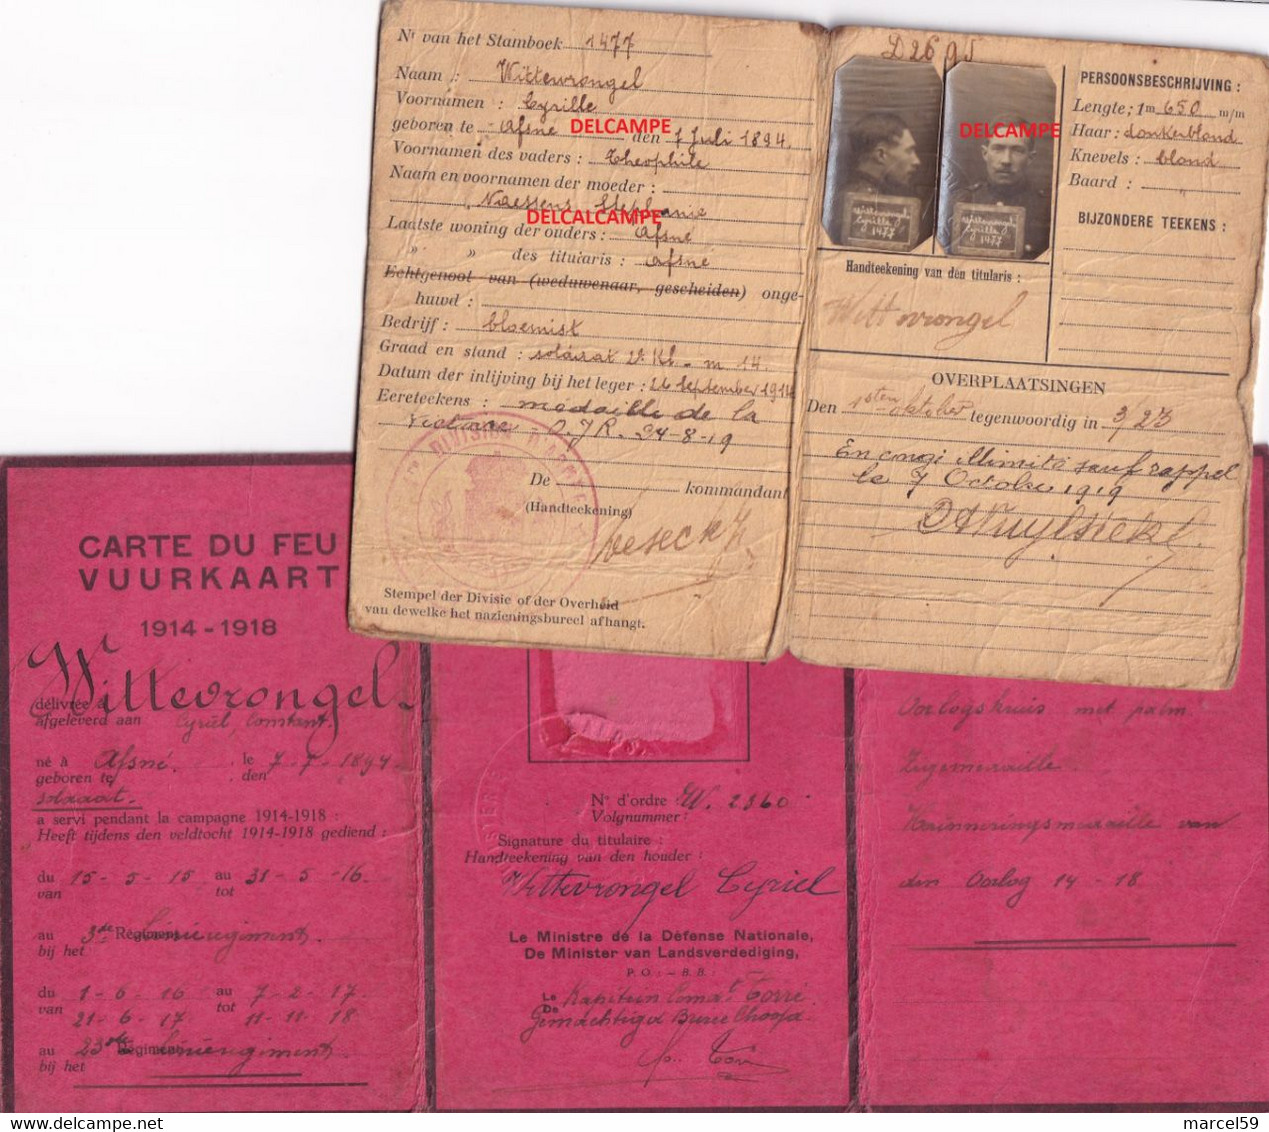 Nr van het Stamboek 1477
Naam : Wittewrongel
Voornamen : Cyrille
geboren te - Afsné den 7 Juli 1894.
DELCAMPE
Voornamen des vaders : Theophile
Naam en voornamen der moeder :
Naessens Stephanie
DELCALCAMPE
Laatste woning der ouders : Afsné
» » des titularis : Afsné
Echtgenoot van (weduwenaar, gescheiden) onge-
huwd :
Bedrijf : bloemist
Graad en stand : soldaat 2e Kl. - m. 14.
Datum der inlijving bij het leger : 26 September 1914
Eereteekens : médaille de la
Victoire - O.J.R. 24-8-19
De kommandant
(Handteekening)
Stempel der Divisie of der Overheid
van dewelke het nazieningsbureel afhangt.
D2695
DELCAMPE
Wittewrongel
Cyrille
1477
Wittewrongel
Cyrille
1477
Handteekening van den titularis :
Wittevrongel
PERSOONSBESCHRIJVING :
Lengte; 1m 650 m/m
Haar : donkerblond
Knevels : blond
Baard :
BIJZONDERE TEEKENS :
OVERPLAATSINGEN
Den 1sten oktober tegenwoordig in 3/23
En congé illimité sauf rappel
le 7 Octobre 1919
CARTE DU FEU
VUURKAART
1914 - 1918
Wittevrongel
délivrée à
afgeleverd aan Cyriel, Constant.
né à Afsné. le 7-7-1894
geboren te den
soldaat.
a servi pendant la campagne 1914-1918 :
Heeft tijdens den veldtocht 1914-1918 gediend :
du 15-5-15 au 31-5-16.
van tot
au 3de Régiment Linieregiment.
bij het
du 1-6-16 au 7-2-17.
van 21-6-17 tot 11-11-18
au 23ste Régiment Linieregiment.
bij het
N° d'ordre W. 2360
Volgnummer :
Signature du titulaire :
Handteekening van den houder :
Wittevrongel Cyriel
Le Ministre de la Défense Nationale,
De Minister van Landsverdediging,
P. O. : - B. B. :
Le Kapitein Comdt Torré
De
Gemachtigd Bureel Overste
Oorlogskruis met palm
Zegemedaille
Herinneringsmedaille van
den Oorlog 14 - 18
marcel59